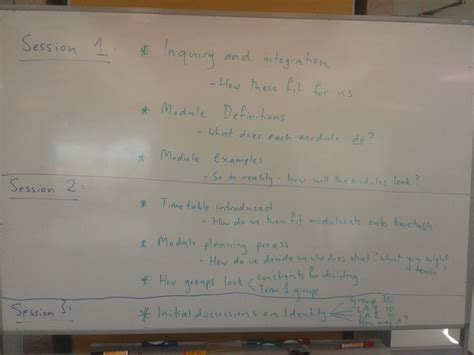 Session 1:
* Inquiry and integration
- How these fit for us
* Module Definitions
- What does each module do?
* Module Examples
- So in reality - how will the modules look?
Session 2:
* Timetable introduced
- How do we then fit modules etc onto timetable
* Module planning process
- How do we decide on who does what? What you might teach?
* How groups look
constraints for deciding
Term 1 groups
Session 3:
* Initial discussions on Identity
Group 30
LA 1 10
LA 2 10
How was it?